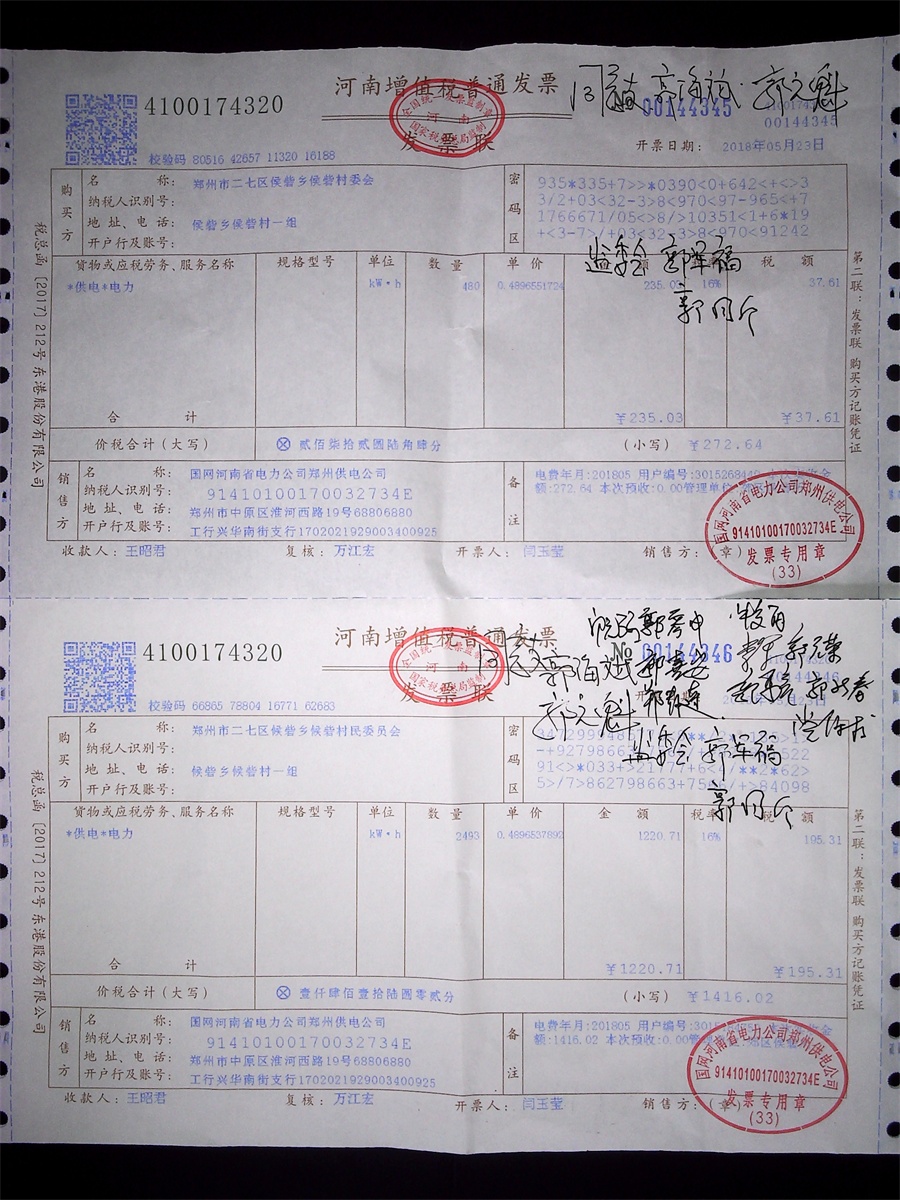 河南增值税普通发票
4100174320
00144345
00144345
发票联
校验码 80516 42657 11320 16188
开票日期: 2018年05月23日
全国统一发票监制章
河南
国家税务总局监制
购买方
名 称: 郑州市二七区侯砦乡侯砦村委会
纳税人识别号:
地 址、电 话: 侯砦乡侯砦村一组
开户行及账号:
密码区
935*335+7>>*0390<0+642<+<>3
3/2+03<32-3>8<970<97-965<+7
1766671/05<>8/>10351<1+6*19
+<3-7>/+03<32+3>8<970<91242
货物或应税劳务、服务名称 规格型号 单位 数 量 单 价 额 税 额
*供电*电力 kW·h 480 0.4896551724 235.03 16% 37.61
监委会 郭军福
合 计 ¥235.03 ¥37.61
价税合计(大写) ⊗ 贰佰柒拾贰圆陆角肆分 (小写) ¥272.64
销售方
名 称: 国网河南省电力公司郑州供电公司
纳税人识别号: 91410100170032734E
地 址、电 话: 郑州市中原区淮河西路19号68806880
开户行及账号: 工行兴华南街支行1702021929003400925
备注
电费年月:201805 用户编号:3015268
额:272.64 本次预收:0.00管理单位:
收款人: 王昭君 复核: 万江宏 开票人: 闫玉莹 销售方:(章)
国网河南省电力公司郑州供电公司
91410100170032734E
发票专用章
(33)
税总函〔2017〕212号 东港股份有限公司
第二联:发票联 购买方记账凭证
河南增值税普通发票
4100174320
№
发票联
校验码 66865 78804 16771 62683
全国统一发票监制章
河南
国家税务总局监制
购买方
名 称: 郑州市二七区侯砦乡侯砦村民委员会
纳税人识别号:
地 址、电 话: 侯砦乡侯砦村一组
开户行及账号:
密码区
监委会 郭军福
货物或应税劳务、服务名称 规格型号 单位 数 量 单 价 金 额 税率 税 额
*供电*电力 kW·h 2493 0.4896537892 1220.71 16% 195.31
合 计 ¥1220.71 ¥195.31
价税合计(大写) ⊗ 壹仟肆佰壹拾陆圆零贰分 (小写) ¥1416.02
销售方
名 称: 国网河南省电力公司郑州供电公司
纳税人识别号: 91410100170032734E
地 址、电 话: 郑州市中原区淮河西路19号68806880
开户行及账号: 工行兴华南街支行1702021929003400925
备注
电费年月:201805 用户编号:301
额:1416.02 本次预收:0.00管
收款人: 王昭君 复核: 万江宏 开票人: 闫玉莹 销售方:(章)
国网河南省电力公司郑州供电公司
91410100170032734E
发票专用章
(33)
税总函〔2017〕212号 东港股份有限公司
第二联:发票联 购买方记账凭证